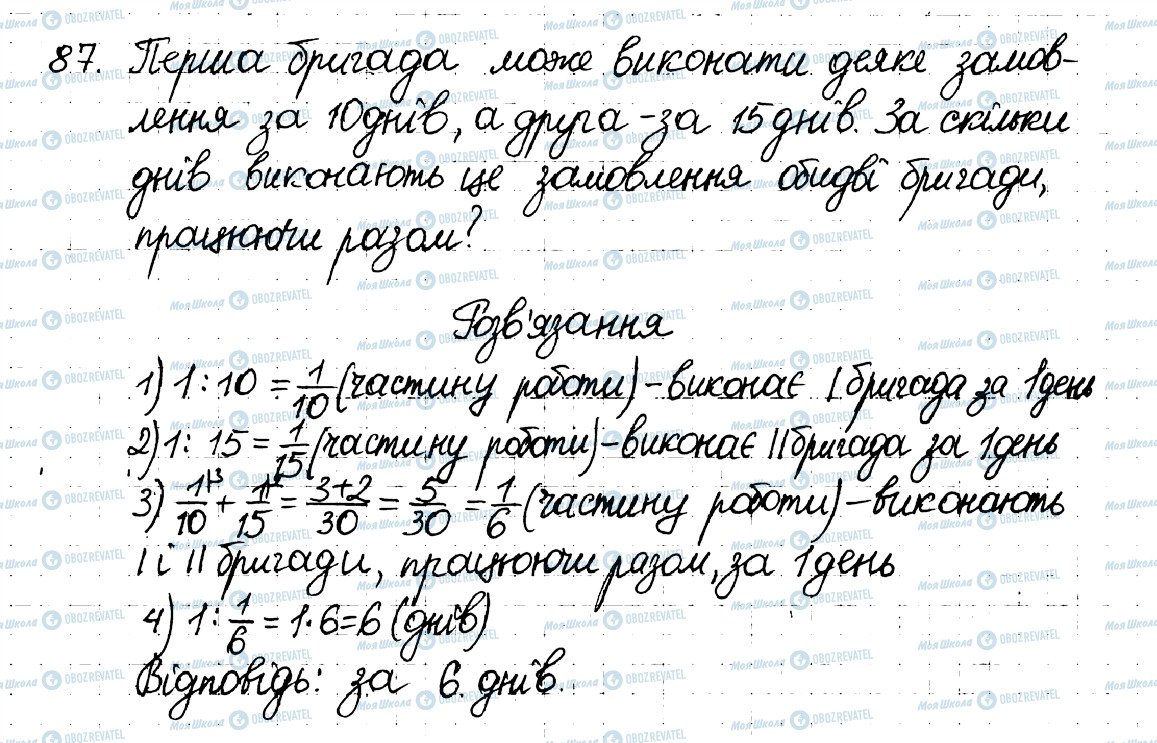 87. Перша бригада може виконати деяке замов-
лення за 10 днів, а друга - за 15 днів. За скільки
днів виконають це замовлення обидві бригади,
працюючи разом?
Розв'язання
1) 1 : 10 = 1/10 (частину роботи) - виконає I бригада за 1 день
2) 1 : 15 = 1/15 (частину роботи) - виконає II бригада за 1 день
3) 1|3/10 + 1|2/15 = 3+2/30 = 5/30 = 1/6 (частину роботи) - виконають
I і II бригади, працюючи разом, за 1 день
4) 1 : 1/6 = 1·6 = 6 (днів)
Відповідь: за 6 днів.
МояШкола OBOZREVATEL